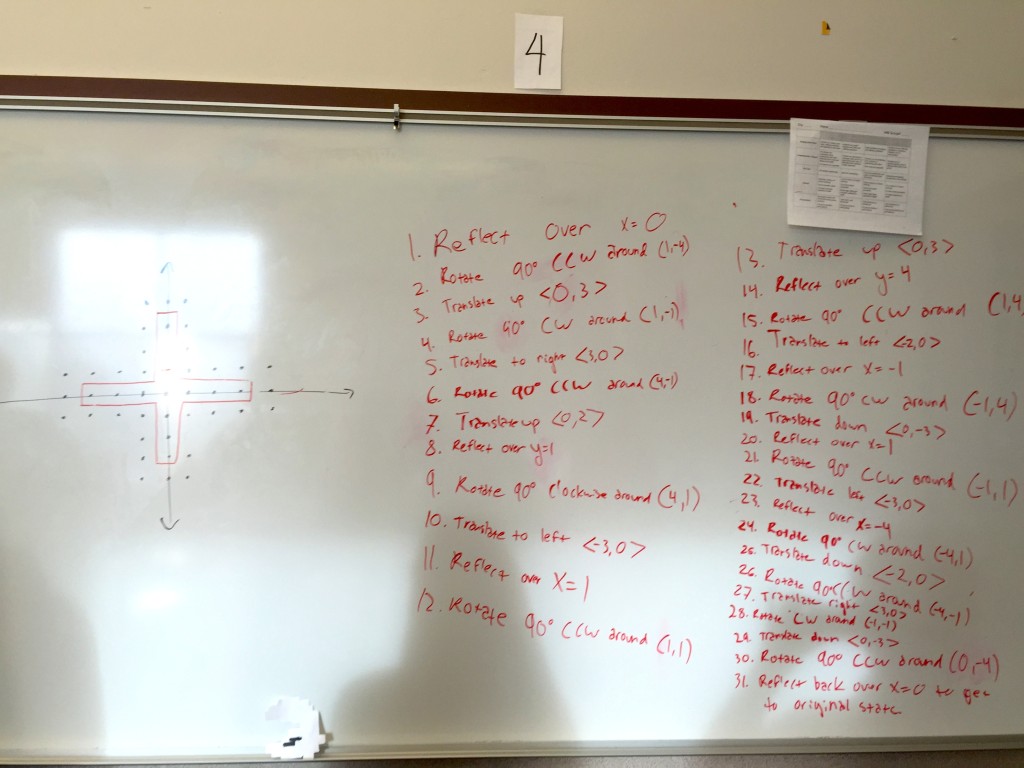 4
1. Reflect over x=0
2. Rotate 90° CCW around (1,-4)
3. Translate up <0,3>
4. Rotate 90° CW around (1,-1)
5. Translate to right <3,0>
6. Rotate 90° CCW around (4,-1)
7. Translate up <0,2>
8. Reflect over y=1
9. Rotate 90° Clockwise around (4,1)
10. Translate to left <-3,0>
11. Reflect over X=1
12. Rotate 90° CCW around (1,1)
13. Translate up <0,3>
14. Reflect over y=4
15. Rotate 90° CCW around (1,4
16. Translate to left <-2,0>
17. Reflect over x=-1
18. Rotate 90° CW around (-1,4)
19. Translate down <0,-3>
20. Reflect over x=1
21. Rotate 90° CCW around (-1,1)
22. Translate left <-3,0>
23. Reflect over x=-4
24. Rotate 90° CW around (-4,1)
25. Translate down <-2,0>
26. Rotate 90° CCW around (-4,-1)
27. Translate right <3,0>
28. Rotate CW around (-1,-1)
29. Translate down <0,-3>
30. Rotate 90° CCW around (0,-4)
31. Reflect back over x=0 to get
to original state